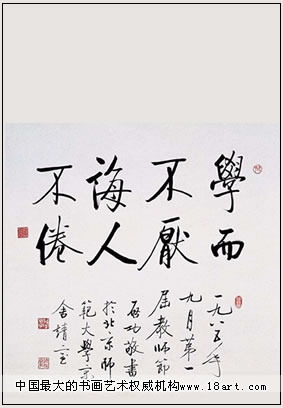 學而
不厭
誨人
不倦
一九八五年
九月第一
屆教師節
启功敬書
於北京師
範大學
舍
中国最大的书画艺术权威机构www.18art.com.